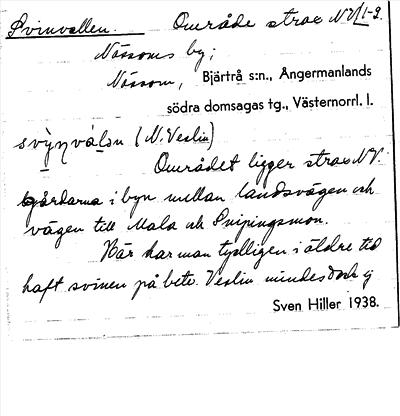 Svinvallen. Område strax NV 1-2.
Nässoms by;
Nässom, Bjärtrå s:n., Ångermanlands
södra domsagas tg., Västernorrl. l.
svỳnválsn (N. Veslin)
Området ligger strax NV.
gårdarna i byn mellan landsvägen och
vägen till Mala och Snipingsmon.
Här har man tydligen i äldre tid
haft svinen på bete. Veslin mindes dock ej
Sven Hiller 1938.